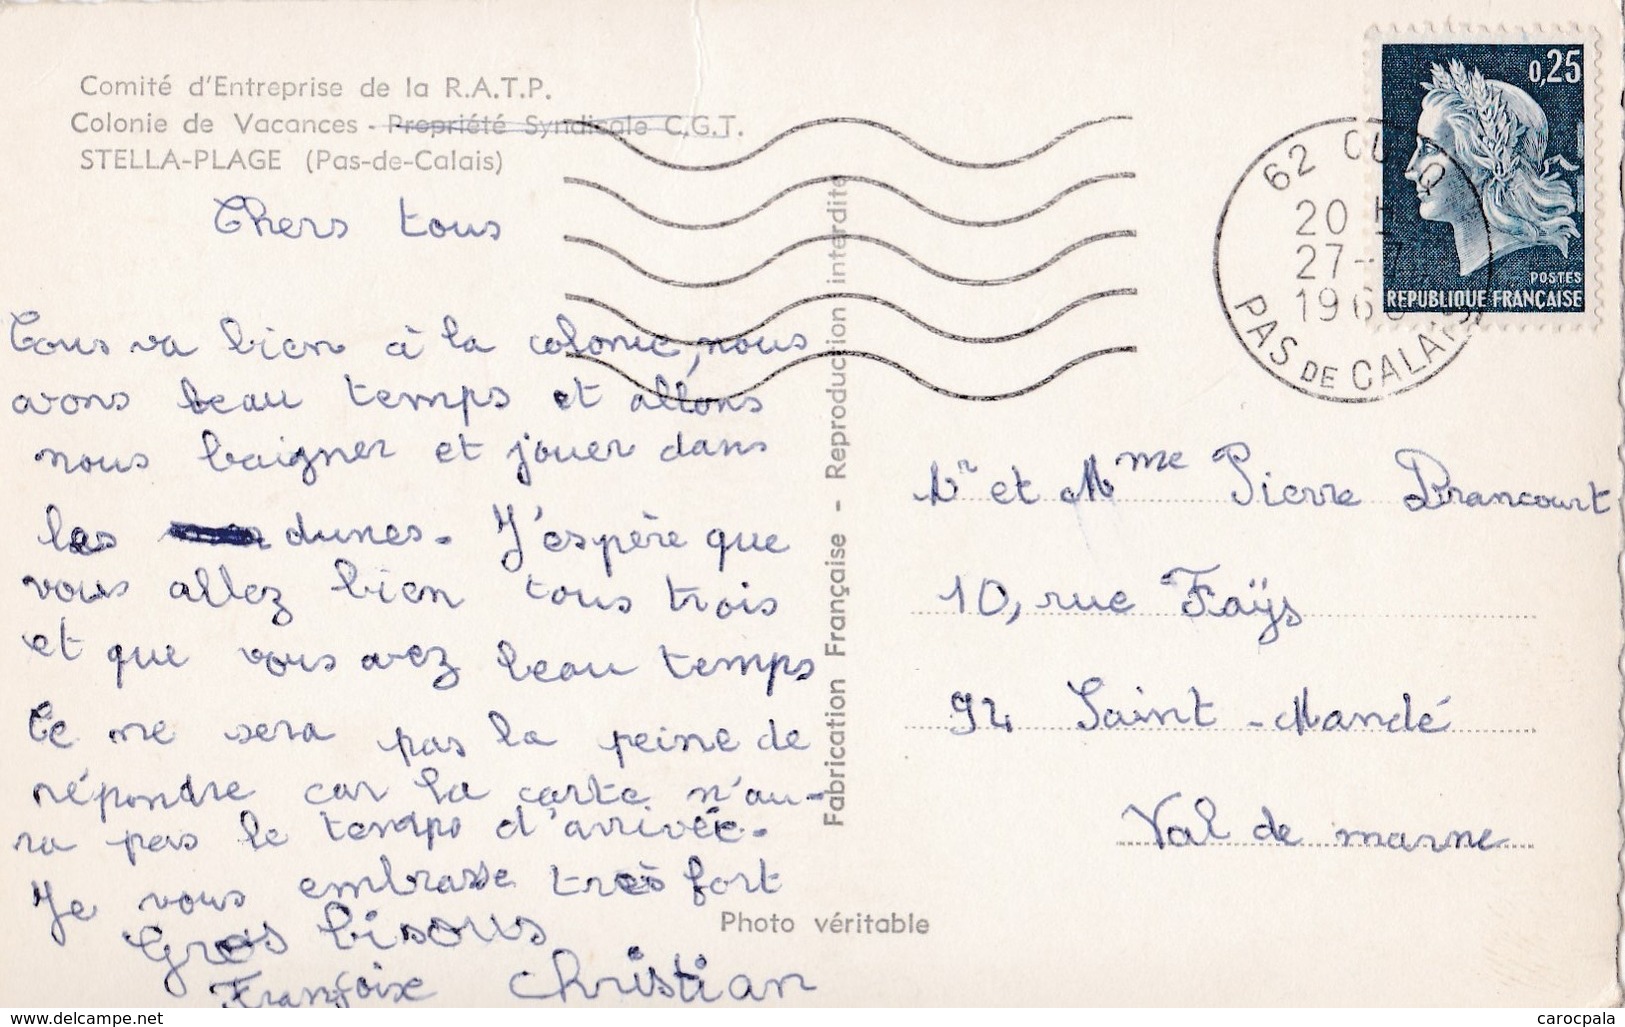 Comité d'Entreprise de la R.A.T.P.
Colonie de Vacances - Propriété Syndicale C.G.T.
STELLA-PLAGE (Pas-de-Calais)
Chers tous
Tous va bien à la colonie, nous
avons beau temps et allons
nous baigner et jouer dans
les dunes. J'espère que
vous allez bien tous trois
et que vous avez beau temps
Ce me sera pas la peine de
répondre car la carte n'au-
ra pas le temps d'arrivée.
Je vous embrasse très fort
Gros bisous
Françoise Christian
Fabrication Française - Reproduction interdite
Photo véritable
0,25
POSTES
REPUBLIQUE FRANÇAISE
62 CUCQ
20 H
27-7
196
PAS DE CALAIS
Mr et Mme Pierre Brancourt
10, rue Faÿs
94 Saint-Mandé
Val de marne
www.delcampe.net
carocpala